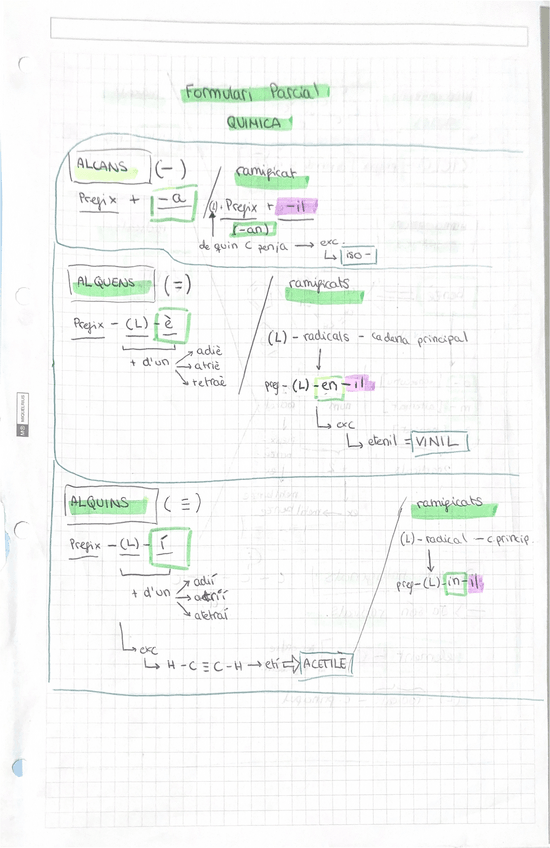 Formulari Parcial
QUIMICA
ALCANS (-)
Prefix + -a
ramificat
(L). Prefix + -il
(-an)
de quin C penja → exc.
↳ iso-
ALQUENS (=)
Prefix - (L) - è
+ d'un → adiè
→ atriè
→ retraè
ramificats
(L) - radicals - cadena principal
pref - (L) - en - il
↳ exc
↳ etenil = VINIL
ALQUINS (≡)
Prefix - (L) - í
+ d'un → adií
→ atrií
→ atetraí
↳ exc
↳ H - C ≡ C - H → etí ⇒ ACETILÈ
ramificats
(L) - radical - c princip.
pref - (L) - in - il